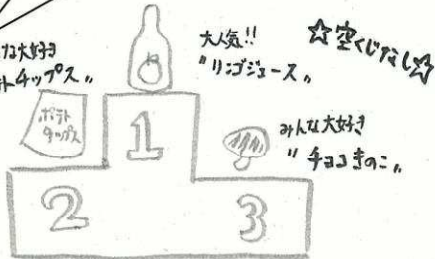 な大好き
チップス„
ポテト
チップス
大人気!!
"リンゴジュース„
☆空くじなし☆
みんな大好き
"チョコきのこ„
1
2
3